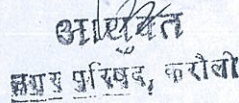 आयुक्त
नगर परिषद, करौली